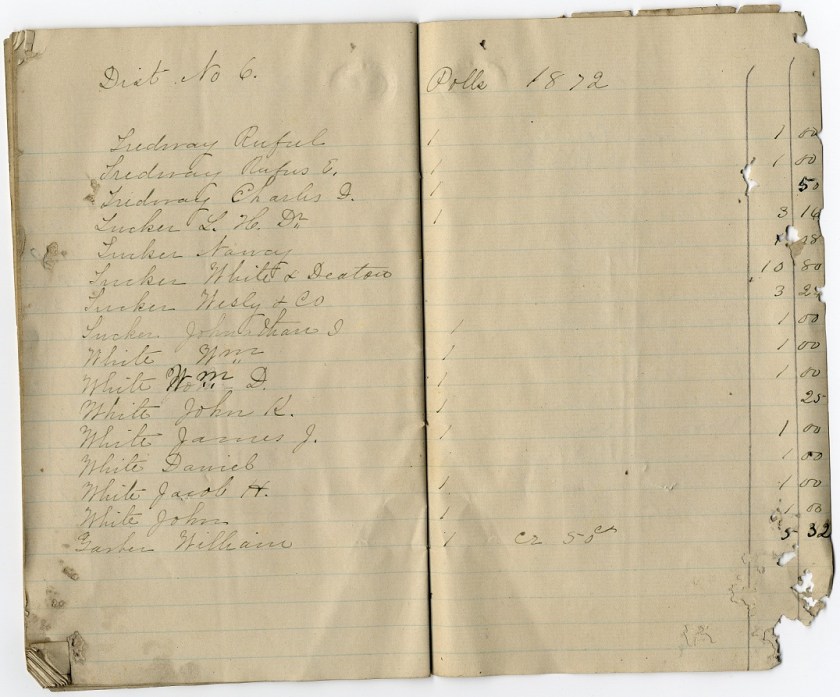 Dist No 6. Polls 1872
Tredway Ruful 1 1 00
Tredway Rufus E. 1 1 00
Tredway Charles D. 1 50
Tucker L. H. Dr 1 3 14
Tucker Nancy 28
Tucker White & Deaton 10 80
Tucker Wesly & Co 3 25
Tucker Johnathan I 1 1 00
White Wm 1 1 00
White Wm D. 1 1 00
White John K. 1 25
White James J. 1 1 00
White Daniel 1 00
White Jacob H. 1 1 00
White John 1 1 00
Garber William 1 cr 50cts 5 32